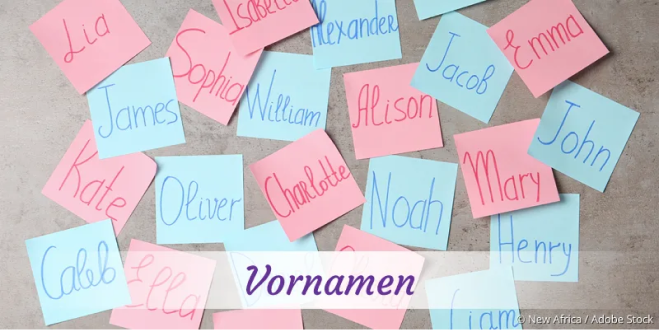 Isabella
Alexander
Lia
Sophia
Emma
Jacob
James
William
Alison
John
Kate
Oliver
Charlotte
Noah
Mary
Henry
Caleb
Ella
Vornamen
Liam
© New Africa / Adobe Stock